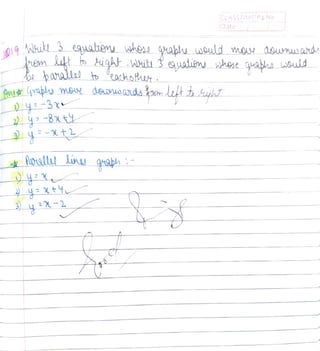 CLASSMATE
Date
Page
Q19 Write 3 equations whose graphs would move downwards
from left to right. Write 3 equations whose graphs would
be parallel to eachother.
Answer Graphs move downwards from left to right
1) y = -3x
2) y = -8x+4
3) y = -x+2
Parallel lines graph :-
1) y = x
2) y = x+4
3) y = x-2
Good